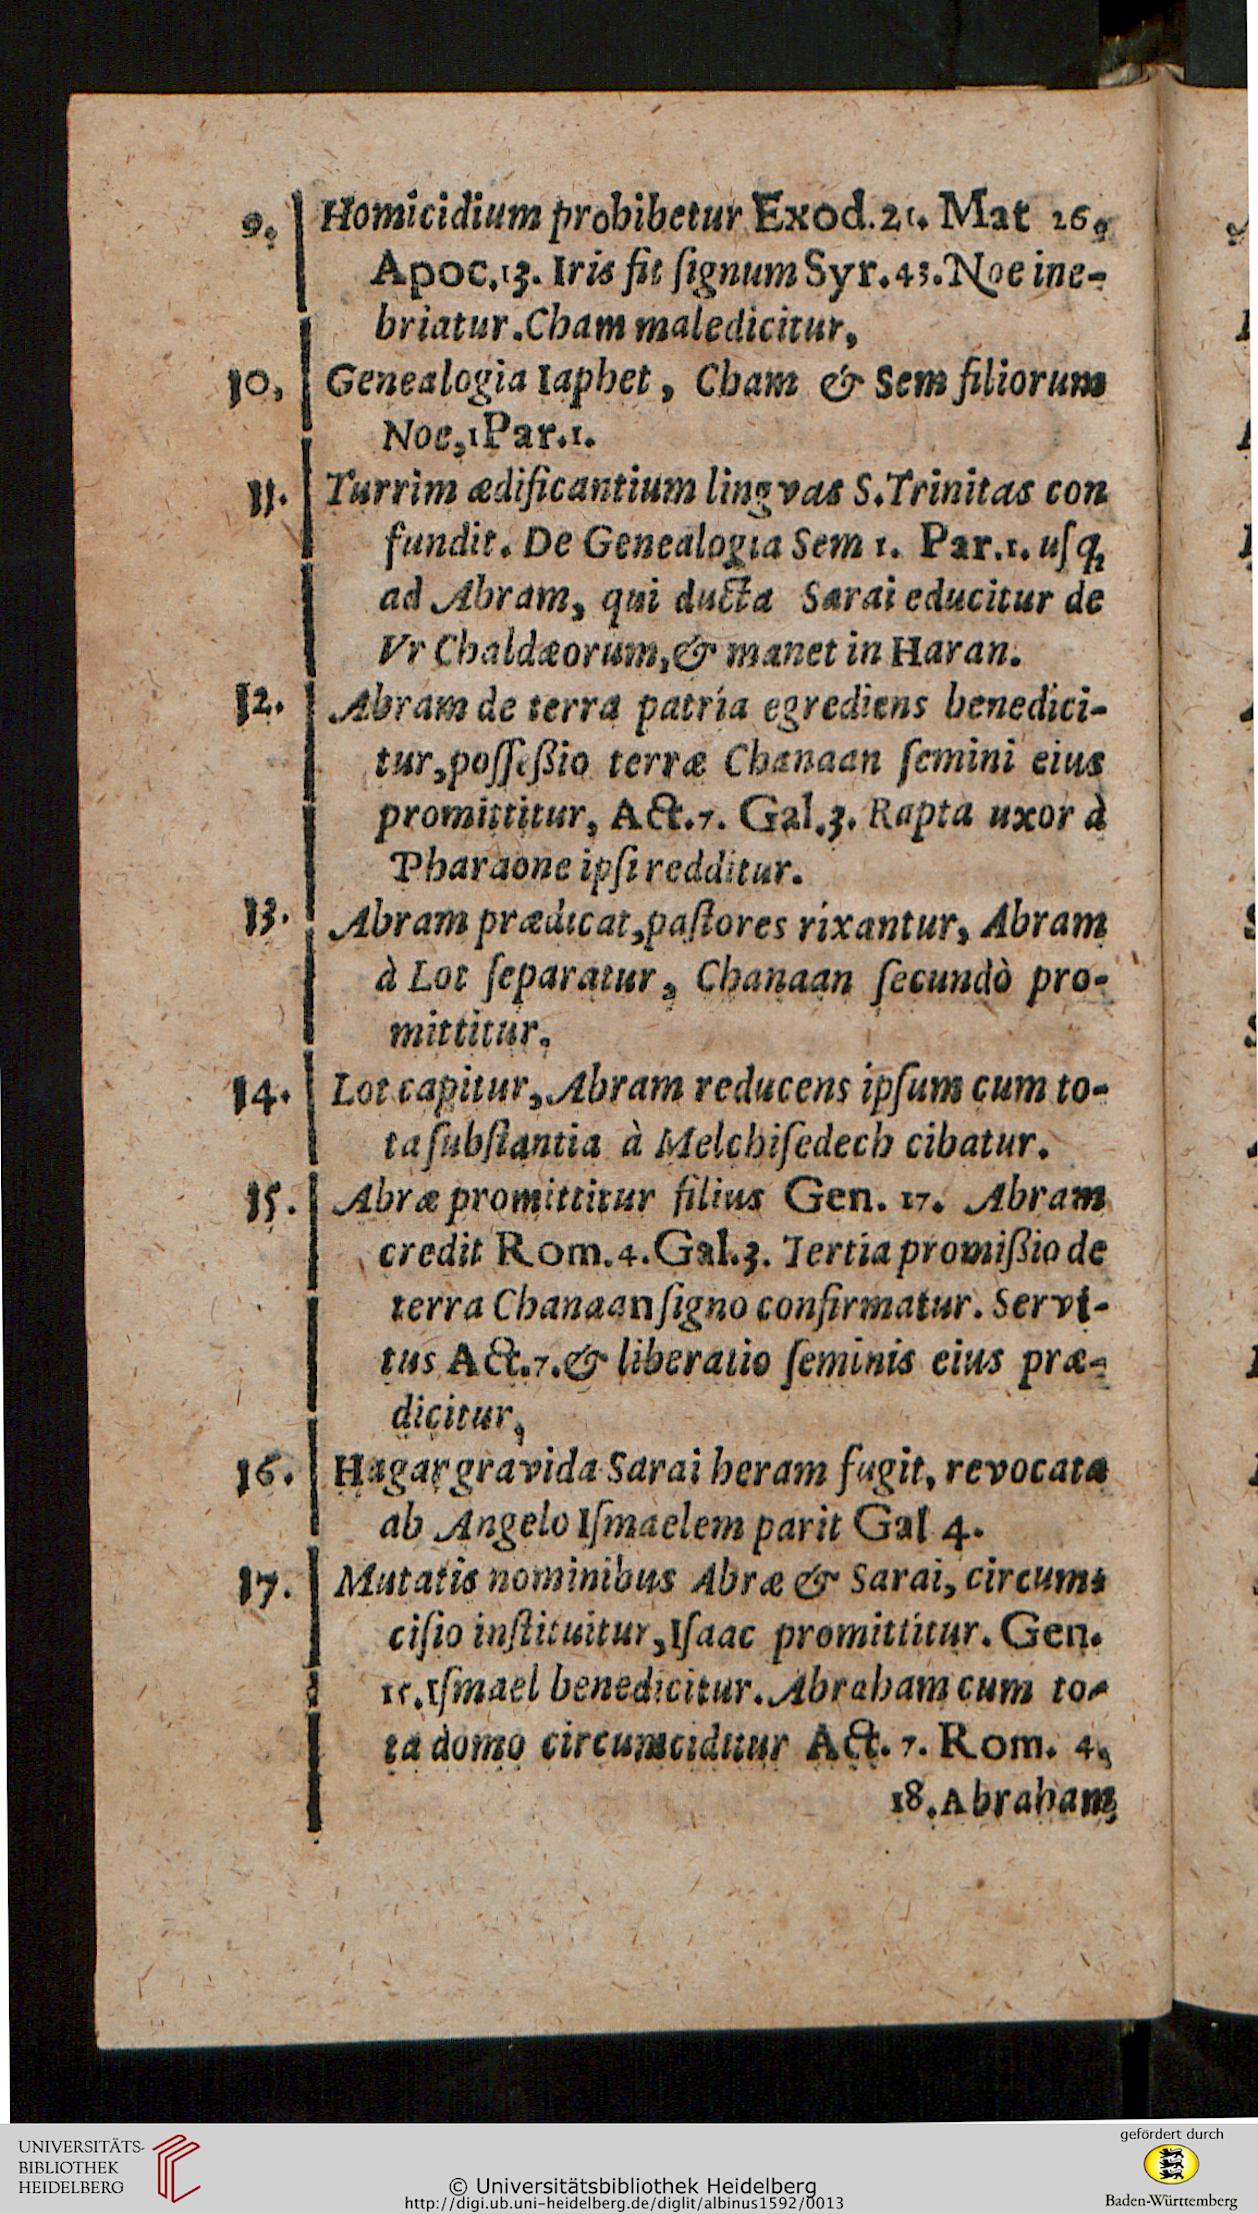 9. Homicidium prohibetur Exod.21. Mat 26.
Apoc.13. Iris fit ſignum Syr.43. Noe ine-
briatur. Cham maledicitur,
10, Genealogia Iaphet, Cham & Sem filiorum
Noe, 1 Par.1.
11. Turrim ædificantium lingvas S. Trinitas con
fundit. De Genealogia Sem 1. Par.1. uſq,
ad Abram, qui ducta Sarai educitur de
Vr Chaldæorum, & manet in Haran.
12. Abram de terra patria egrediens benedici-
tur, poſſeßio terræ Chanaan ſemini eius
promittitur, Act.7. Gal.3. Rapta uxor à
Pharaone ipſi redditur.
13. Abram prædicat, paſtores rixantur, Abram
à Lot ſeparatur, Chanaan ſecundò pro-
mittitur.
14. Lot capitur, Abram reducens ipſum cum to-
ta ſubſtantia à Melchiſedech cibatur.
15. Abræ promittitur filius Gen. 17. Abram
credit Rom.4. Gal.3. Tertia promißio de
terra Chanaan ſigno confirmatur. Servi-
tus Act.7. & liberatio ſeminis eius præ-
dicitur,
16. Hagar gravida Sarai heram fugit, revocata
ab Angelo Iſmaelem parit Gal 4.
17. Mutatis nominibus Abræ & Sarai, circum-
ciſio inſtituitur, Iſaac promittitur. Gen.
15. Iſmael benedicitur. Abraham cum to-
ta domo circumciditur Act. 7. Rom. 4,
18. Abraham
UNIVERSITÄTS-
BIBLIOTHEK
HEIDELBERG
© Universitätsbibliothek Heidelberg
http://digi.ub.uni-heidelberg.de/diglit/albinus1592/0013
gefördert durch
Baden-Württemberg